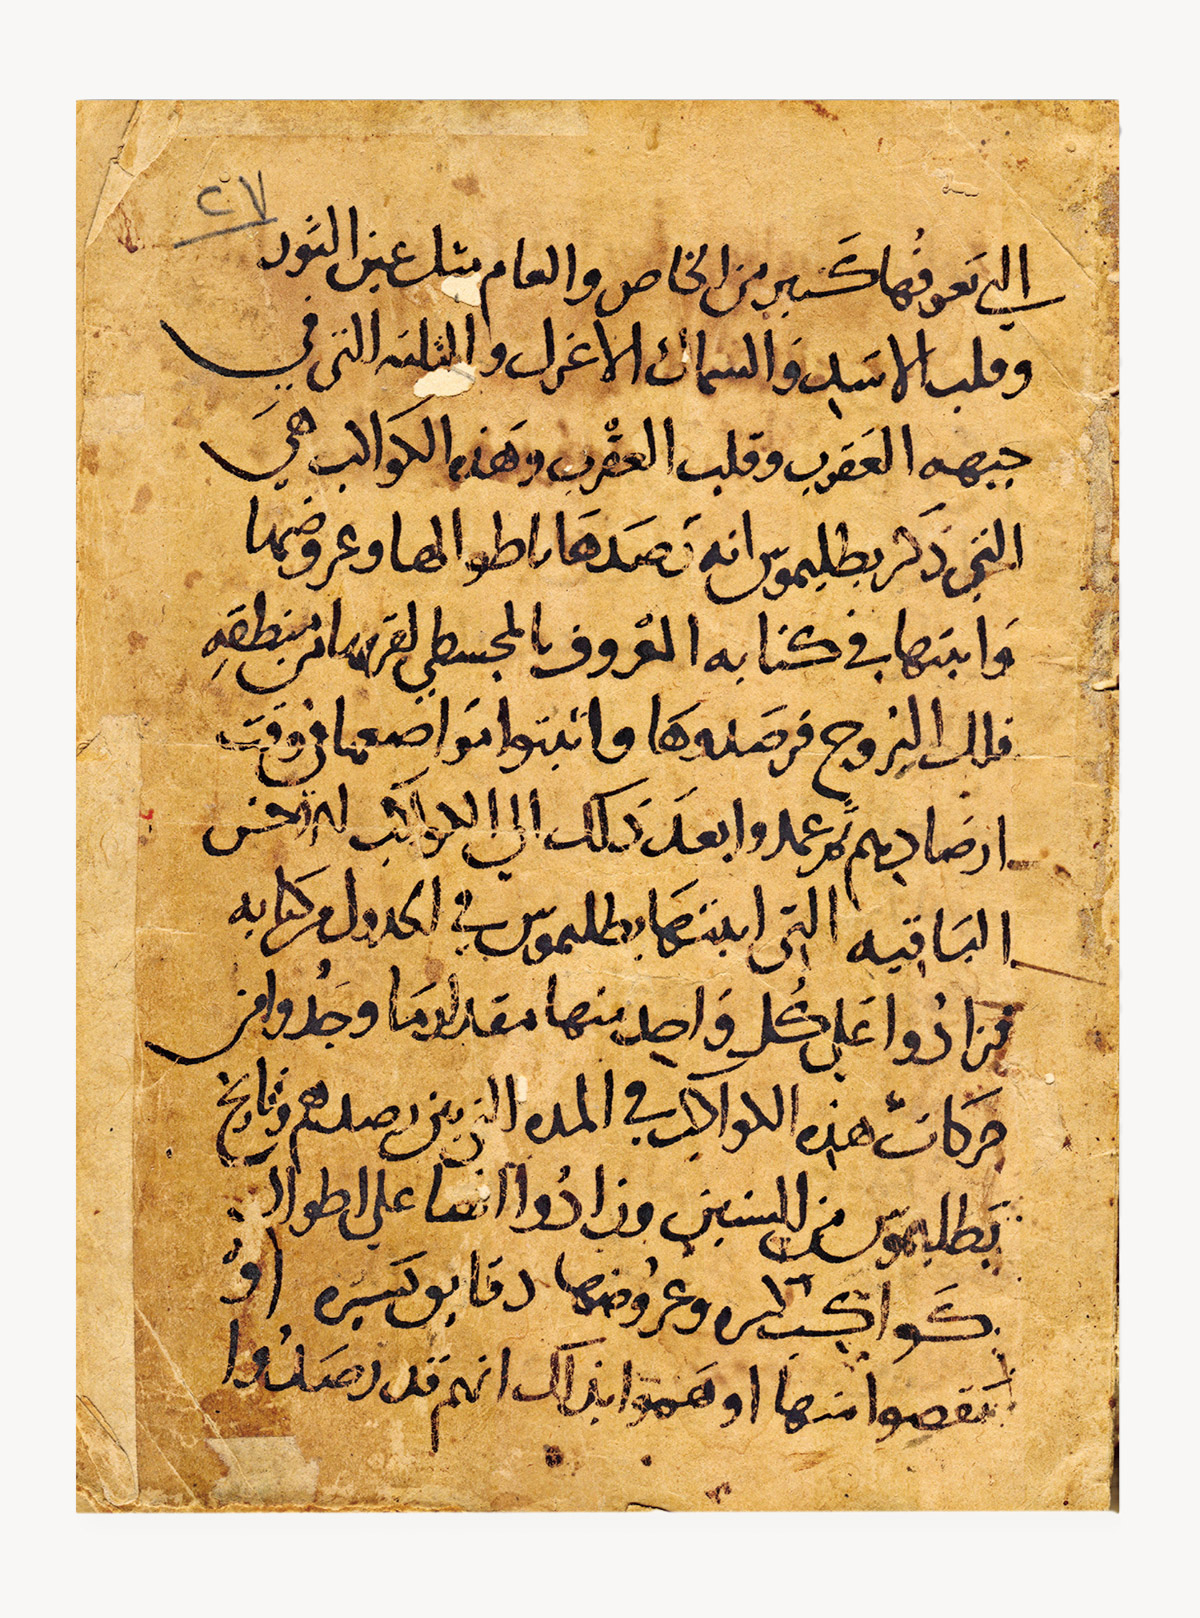 ٢٧
التي تعرفها كثير من الخاص والعام مثل عين الثور
وقلب الاسد والسماك الاعزل والثلثه التي في
جبهه العقرب وقلب العقرب وهذه الكواكب هي
التي ذكر بطليموس انه رصدها باطوالها وعروضها
واثبتها في كتابه المعروف بالمجسطي لقربها من منطقه
فلك البروج فرصدوها واثبتوا مواضعها في وقت
ارصادهم ثم عمدوا بعد ذلك الي الكواكب
الباقيه التي اثبتها بطليموس في الجدول من كتابه
فزادوا علي كل واحد منها مقدار ما وجدوا من
حركات هذه الكواكب في المده التي بين رصدهم وتاريخ
بطليموس من السنين وزادوا ايضا علي اطوال
كواكب كثيره وعروضها دقايق يسيره او
نقصوا منها اوهموا بذلك انهم قد رصدوا